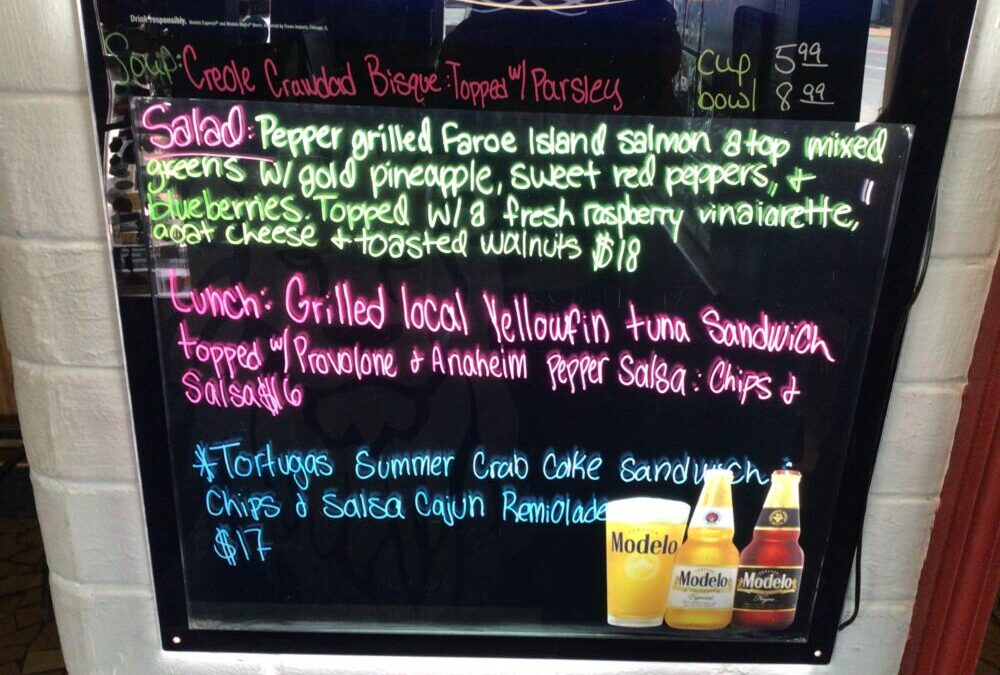 Drink responsibly.
Soup: Creole Crawdad Bisque: Topped w/ Parsley
cup 5.99
bowl 8.99
Salad: Pepper grilled Faroe Island salmon atop mixed
greens w/ gold pineapple, sweet red peppers, +
blueberries. Topped w/ a fresh raspberry vinaiarette,
goat cheese + toasted walnuts $18
Lunch: Grilled local Yellowfin tuna Sandwich
topped w/ Provolone & Anaheim Pepper Salsa: Chips &
Salsa $16
*Tortugas Summer Crab Cake Sandwich:
Chips & Salsa Cajun Remiolade
$17
Modelo
Modelo
Especial
Modelo
Negra